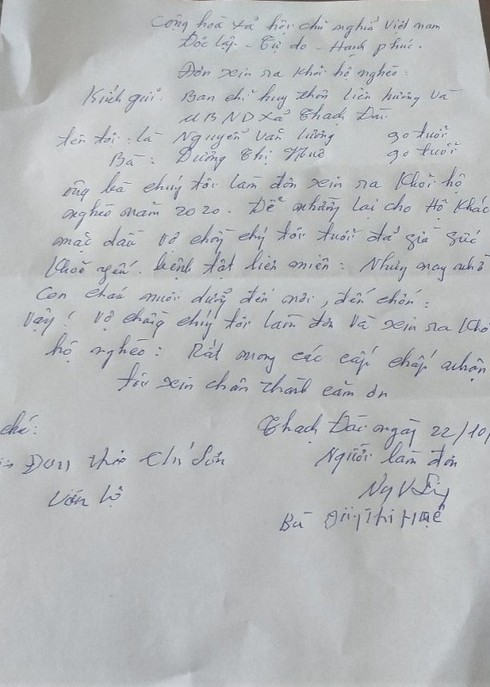 Cộng hoà xã hội chủ nghĩa Việt nam
Độc lập - Tự do - Hạnh phúc.
Đơn xin ra khỏi hộ nghèo:
Kính gửi: Ban chỉ huy thôn liên hương và
UBND xã Thạch Đài
tên tôi: là Nguyễn Văn Lương 90 tuổi
Bà: Dương Thị Huê 90 tuổi
ông bà chúng tôi làm đơn xin ra khỏi hộ
nghèo năm 2020. Để nhường lại cho Hộ khác
mặc dầu vợ chồng chúng tôi tuổi đã già sức
khoẻ yếu. bệnh tật liên miên: Nhưng may nhờ
Con cháu nuôi dưỡng đến nơi, đến chốn:
Vậy! Vợ chồng chúng tôi làm đơn và xin ra khỏ
hộ nghèo: Rất mong các cấp chấp nhận
tôi xin chân thành cảm ơn
Thạch Đài ngày 22/10/
chú:
Người làm đơn
Đơn
Bà Thị Huê